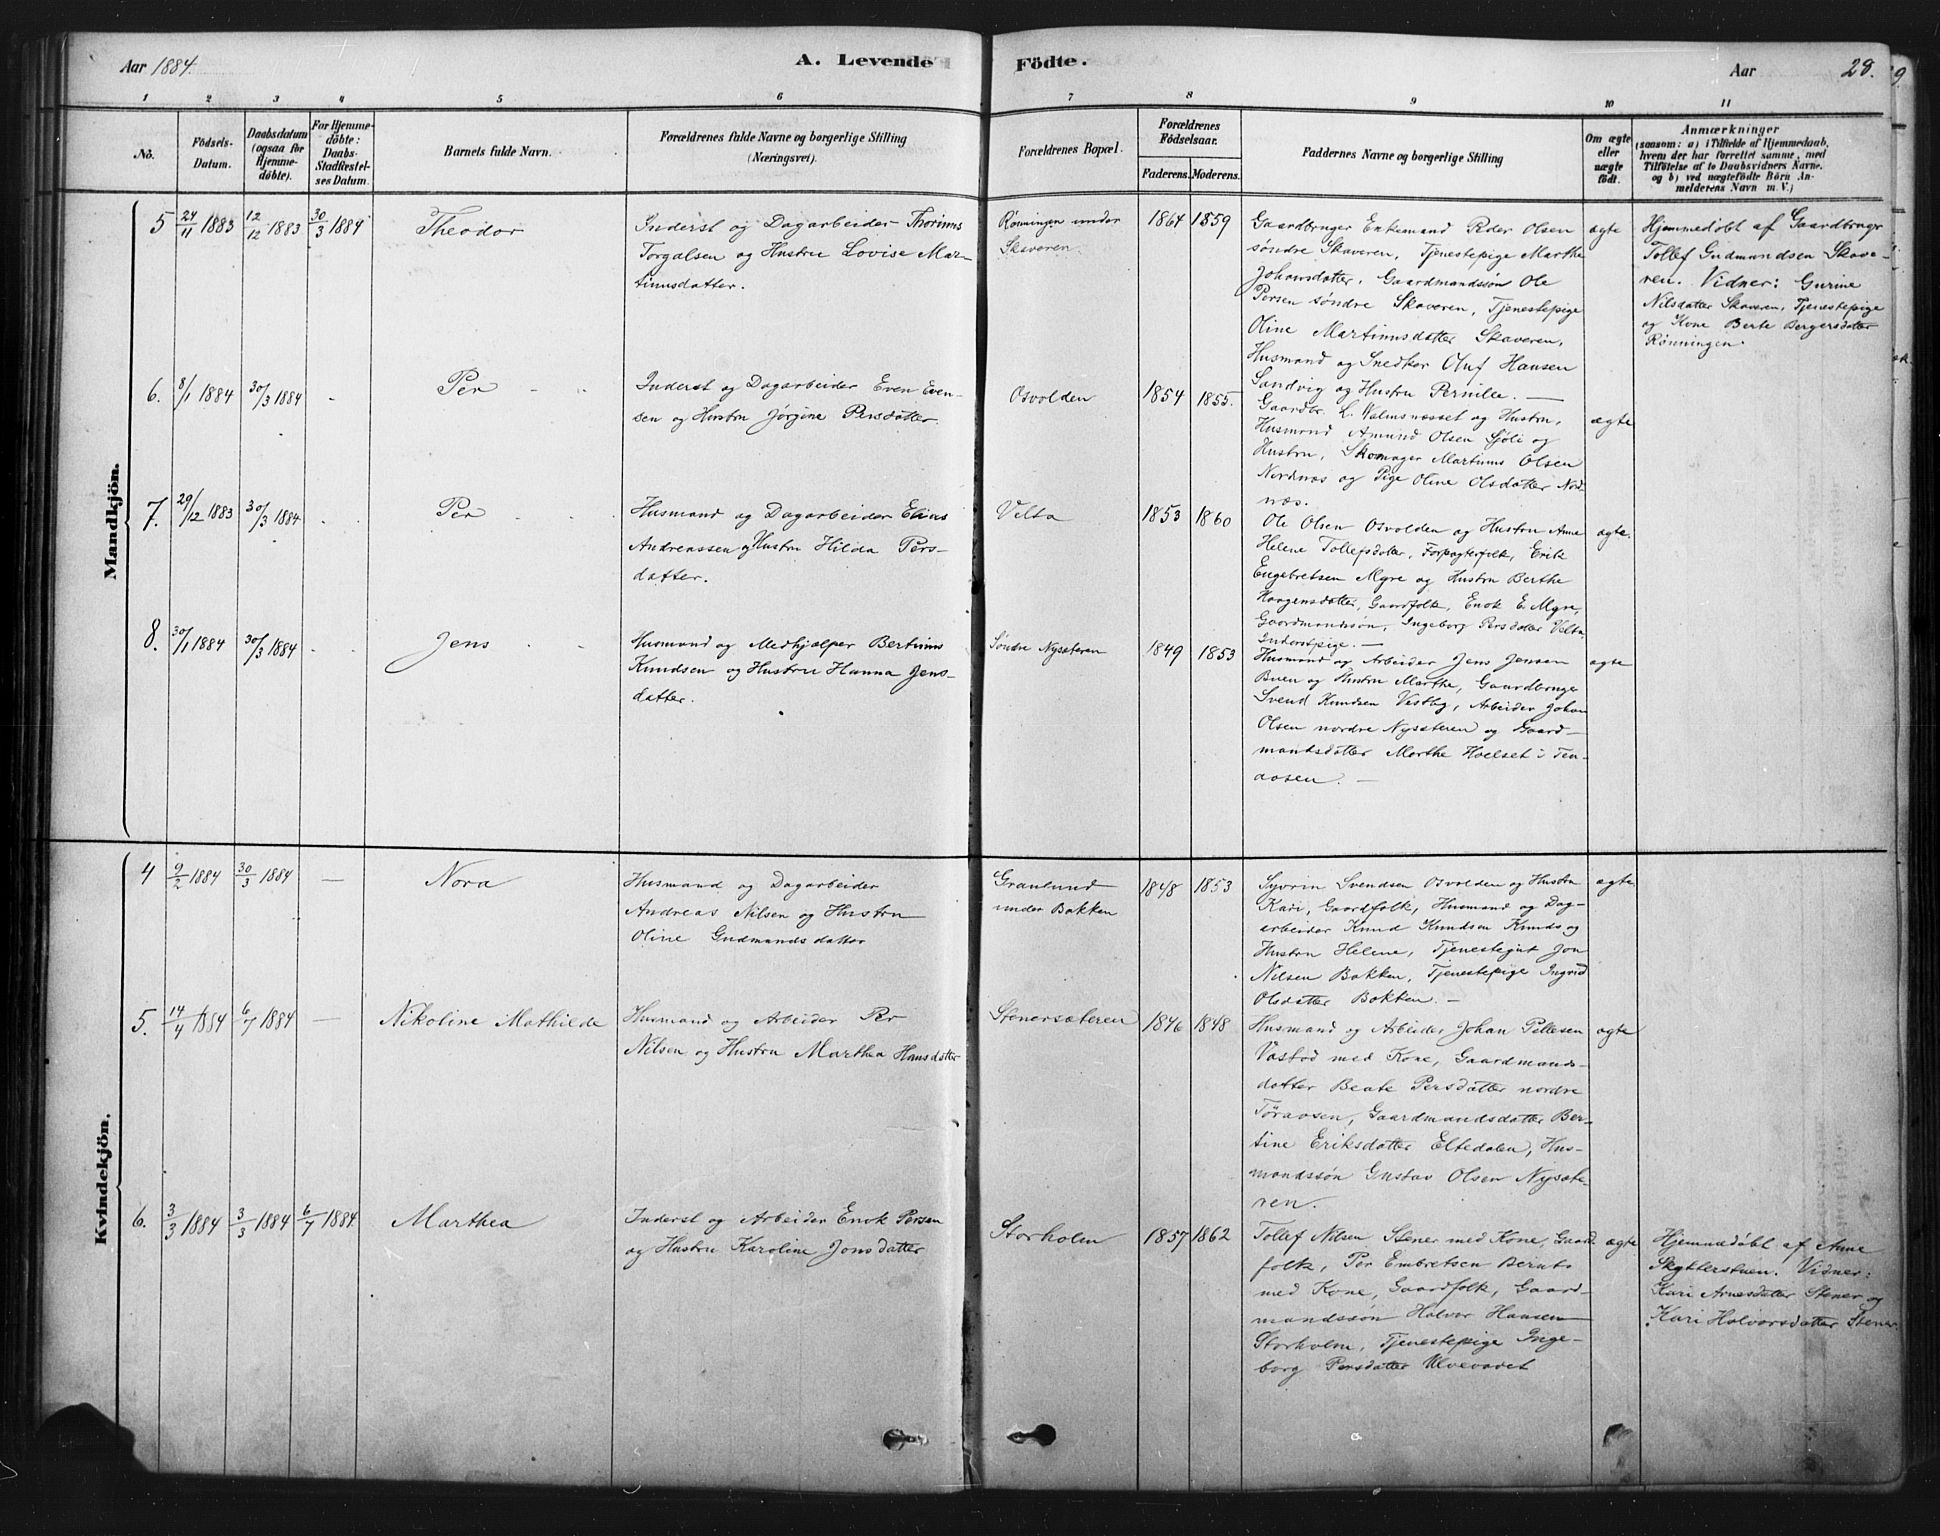 Aar 1884.
A. Levende Födte.
Aar
28.
1 2 3 4 5 6 7 8 9 10 11
No.
Födsels-
Datum.
Daabsdatum
(ogsaa for
Hjemme-
döbte).
For Hjemme-
döbte:
Daabs-
Stadfæstel-
ses Datum.
Barnets fulde Navn.
Forældrenes fulde Navne og borgerlige Stilling
(Næringsvei).
Forældrenes Bopæl.
Forældrenes
Födselsaar.
Faderens. Moderens.
Faddernes Navne og borgerlige Stilling
Om ægte
eller
uægte
födt.
Anmærkninger
(saasom: a) i Tilfælde af Hjemmedaab,
hvem der har forrettet samme, med
Tilföielse af to Daabsvidners Navne,
og b) ved uægtefödte Börn An-
melderens Navn m. V.)
Mandkjön.
5 24/11 1883 12/12 1883 30/3 1884
Theodor
Inderst og Dagarbeider Thorinus
Torgalsen og Hustru Lovise Mar-
tinusdatter.
Rønningen under
Skaveren.
1864 1859
Gaardbruger Enkemand Peder Olsen
søndre Skaveren, Tjenestepige Marthe
Johansdatter, Gaardmandssøn Ole
Persen søndre Skaveren, Tjenestepige
Oline Martinusdatter Skaveren,
Husmand og Snedker Oluf Hansen
Sandvig og Hustru Pernille. —
ægte
Hjemmedøbt af Gaardbruger
Tollef Gudmundsen Skave-
ren. Vidner: Gurine
Nilsdatter Skaveren, Tjenestepige
og Kone Berte Bergersdatter
Rønningen.
6. 8/1 1884 30/3 1884
Per
Inderst og Dagarbeider Even Even-
sen og Hustru Jørgine Persdatter.
Osvolden
1854 1855.
Gaardbr. L. Malmnæsset og Hustru,
Husmand Amund Olsen Sjøli og
Hustru, Skomager Martinus Olsen
Nordnæs og Pige Oline Olsdatter Nord-
næs.
ægte
7. 29/12 1883 30/3 1884
Per
Husmand og Dagarbeider Elias
Andreassen og Hustru Hilda Pers-
datter.
Velta
1853 1860
Ole Olsen Osvolden og Hustru Anne
Helene Tollefsdatter, Forpagterfolk, Erik
Engebretsen Myre og Hustru Berthe
Haagensdatter, Gaardfolk, Enok E. Myre,
Gaardmandssøn, Ingeborg Persdatter Velta,
Inderstpige. —
ægte.
8. 30/1 1884 30/3 1884
Jens
Husmand og Medhjælper Bertinus
Knudsen og Hustru Hanna Jens-
datter.
Søndre Nysæteren
1849 1853
Husmand og Arbeider Jens Jensen
Buen og Hustru Marthe, Gaardbruger
Svend Knudsen Vestby, Arbeider Johan
Olsen nordre Nysæteren og Gaard-
mandsdatter Marthe Hoelset i Ten-
aasen. —
ægte
Kvindekjön.
4 9/2 1884 30/3 1884 —
Nora
Husmand og Dagarbeider
Andreas Nilsen og Hustru
Oline Gudmundsdatter
Granlund
under Bakken
1848 1853
Syvrin Svendsen Osvolden og Hustru
Kari, Gaardfolk, Husmand og Dag-
arbeider Knud Knudsen Knuds og
Hustru Helene, Tjenestegut Jon
Nilsen Bakken, Tjenestepige Ingrid
Olsdatter Bakken. —
ægte
5. 14/4 1884 6/7 1884 —
Nikoline Mathilde
Husmand og Arbeider Per
Nilsen og Hustru Marthea Hansdatter
Stenersæteren
1846 1848
Husmand og Arbeider Johan Pellesen
Vastad med Kone, Gaardmands-
datter Beate Persdatter nordre
Töraasen, Gaardmandsdatter Ber-
tine Eriksdatter Eltedalen, Hus-
mandssøn Gustav Olsen Nysæte-
ren.
ægte
6. 3/3 1884 3/3 1884 6/7 1884
Marthea
Inderst og Arbeider Enok Persen
og Hustru Karoline Jonsdatter
Storholm
1857 1862
Tollef Nilsen Stener med Kone, Gaard-
folk, Per Embretsen Bernts
med Kone, Gaardfolk, Gaard-
mandssøn Halvor Hansen
Storholm, Tjenestepige Inge-
borg Persdatter Ulvevadet
ægte
Hjemmedøbt af Anne
Skytterstuen. Vidner:
Kari Arnesdatter Stener og
Kari Halvorsdatter Stener.